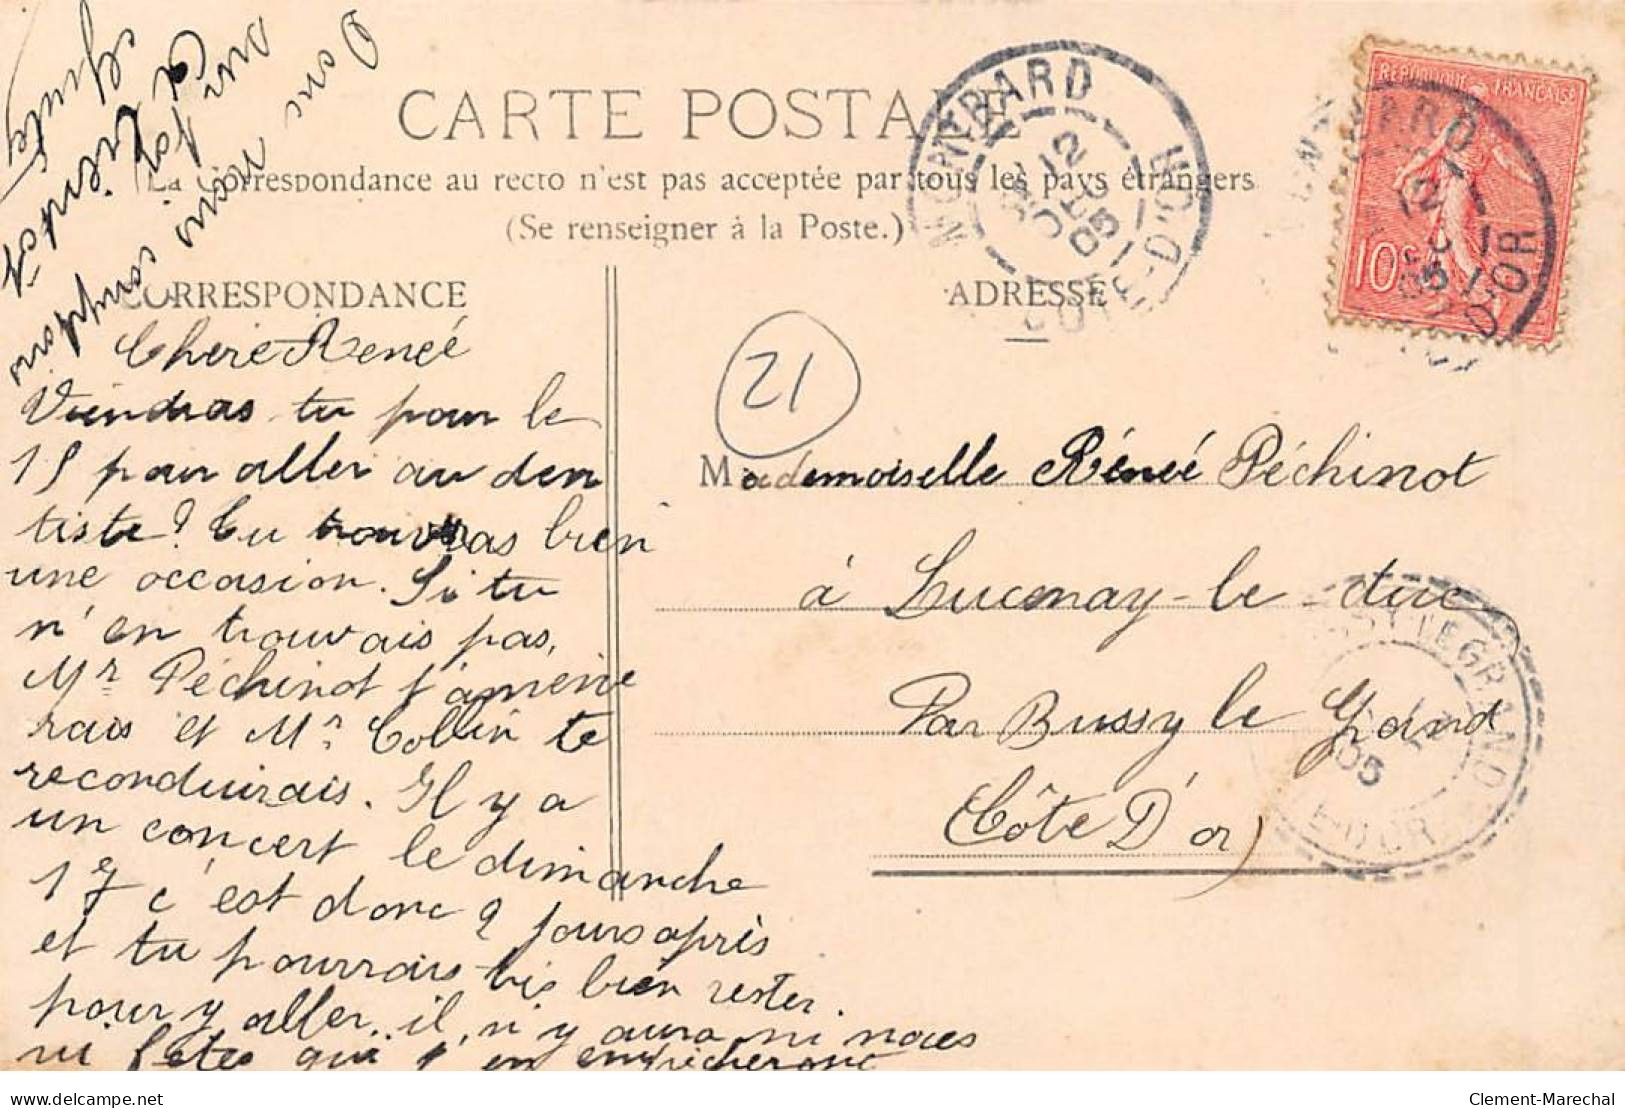 CARTE POSTALE
La Correspondance au recto n'est pas acceptée par tous les pays étrangers
(Se renseigner à la Poste.)
CORRESPONDANCE
Chère Renée
Viendras tu pour le
15 pour aller au den
tiste? Tu trouvras bien
une occasion. Si tu
n'en trouvais pas,
Mr Péchinot t'amène
rais et Mr Collin te
reconduirais. Il y a
un concert le dimanche
17 c'est donc 2 jours après
et tu pourrais très bien rester
pour y aller, il n'y aura ni noces
ni fêtes qui t'en empêcheront
Donc nous comptons
sur toi
et viendra
ADRESSE
21
Mademoiselle Rénée Péchinot
à Lucenay-le-duc
Par Bussy le Grand
Côte D'or
MONTBARD
12
DEC
05
CÔTE-D'OR
REPUBLIQUE FRANÇAISE
10c
BARD
12
05
D'OR
LE GRAND
05
D'OR
delcampe.net
Clement-Marechal